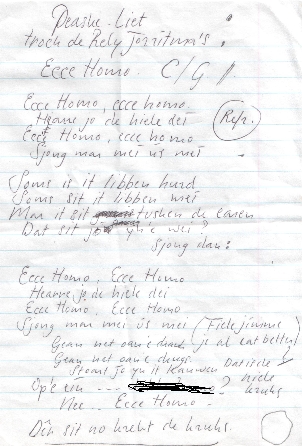 Peaske-Liet
troch de Rely Jorritsma's
Ecce Homo. C/G
Ecce Homo, ecce homo
Hearre jo de hiele dei
Refr.
Ecce Homo, ecce homo
Sjong mar mei ús mei
Soms is it libben hurd
Soms sit it libben mei
Mar it sit tusken de earen
Dat sit
Sjong dan:
Ecce Homo, Ecce Homo
Hearre jo de hiele dei
Ecce Homo, Ecce Homo
Sjong mar mei ús mei
Gean net oan'e
jo al eat better
Gean net oan'e drugs
Stean jo yn it
Dat it de
hiele
Op'e ein ... ?
kruks
Nee .. Ecce Homo -
Dêr sit no krekt de kruks.